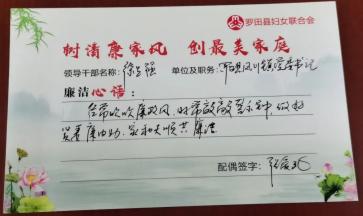 罗田县妇女联合会
树清廉家风 创最美家庭
领导干部名称：徐 强 单位及职务：罗田凤山镇 委书记
廉洁心语：
经常吹吹廉政风，时常敲敲警示钟，做好
贤妻廉内助，家和大顺共廉洁
配偶签字：张爱